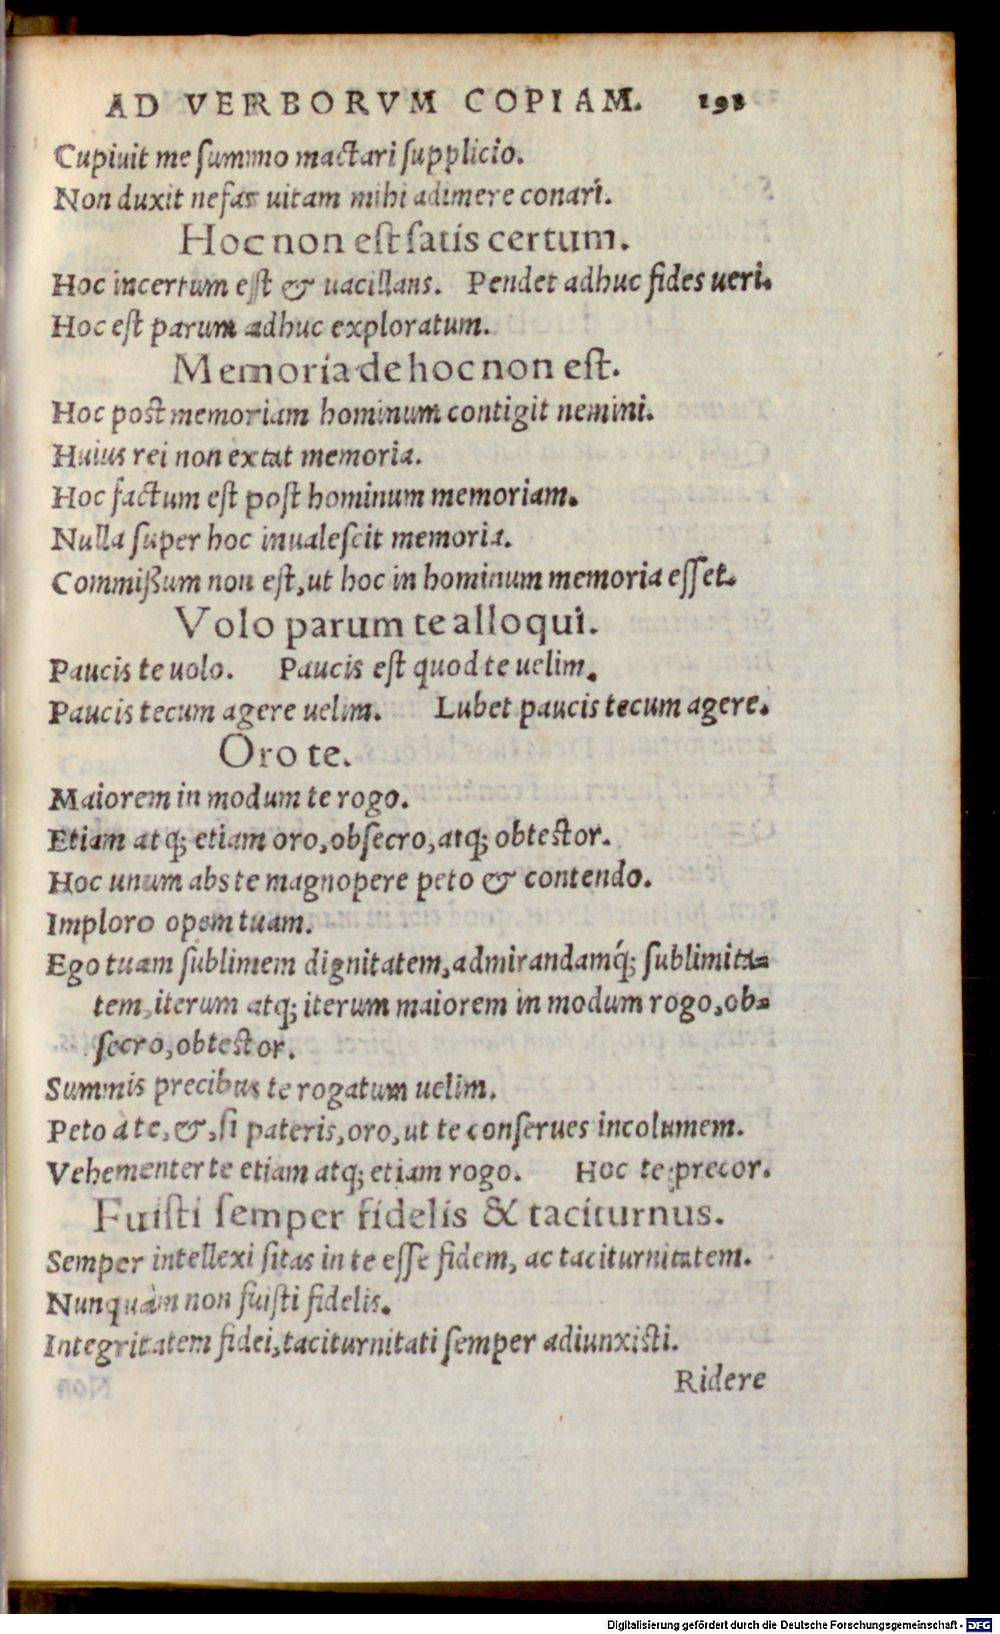 AD VERBORVM COPIAM. 198
Cupiuit me ſummo mactari ſupplicio.
Non duxit nefas uitam mihi adimere conari.
Hoc non eſt ſatis certum.
Hoc incertum eſt & uacillans. Pendet adhuc fides ueri.
Hoc eſt parum adhuc exploratum.
Memoria de hoc non eſt.
Hoc poſt memoriam hominum contigit nemini.
Huius rei non extat memoria.
Hoc factum eſt poſt hominum memoriam.
Nulla ſuper hoc inualeſcit memoria.
Commißum non eſt, ut hoc in hominum memoria eſſet.
Volo parum te alloqui.
Paucis te uolo. Paucis eſt quod te uelim.
Paucis tecum agere uelim. Lubet paucis tecum agere.
Oro te.
Maiorem in modum te rogo.
Etiam atq; etiam oro, obſecro, atq; obteſtor.
Hoc unum abs te magnopere peto & contendo.
Imploro opem tuam.
Ego tuam ſublimem dignitatem, admirandamq́; ſublimita-
tem, iterum atq; iterum maiorem in modum rogo, ob-
ſecro, obteſtor.
Summis precibus te rogatum uelim.
Peto à te, &, ſi pateris, oro, ut te conſerues incolumem.
Vehementer te etiam atq; etiam rogo. Hoc te precor.
Fuiſti ſemper fidelis & taciturnus.
Semper intellexi ſitas in te eſſe fidem, ac taciturnitatem.
Nunquàm non fuiſti fidelis.
Integritatem fidei, taciturnitati ſemper adiunxiſti.
Ridere
Digitalisierung gefördert durch die Deutsche Forschungsgemeinschaft - DFG